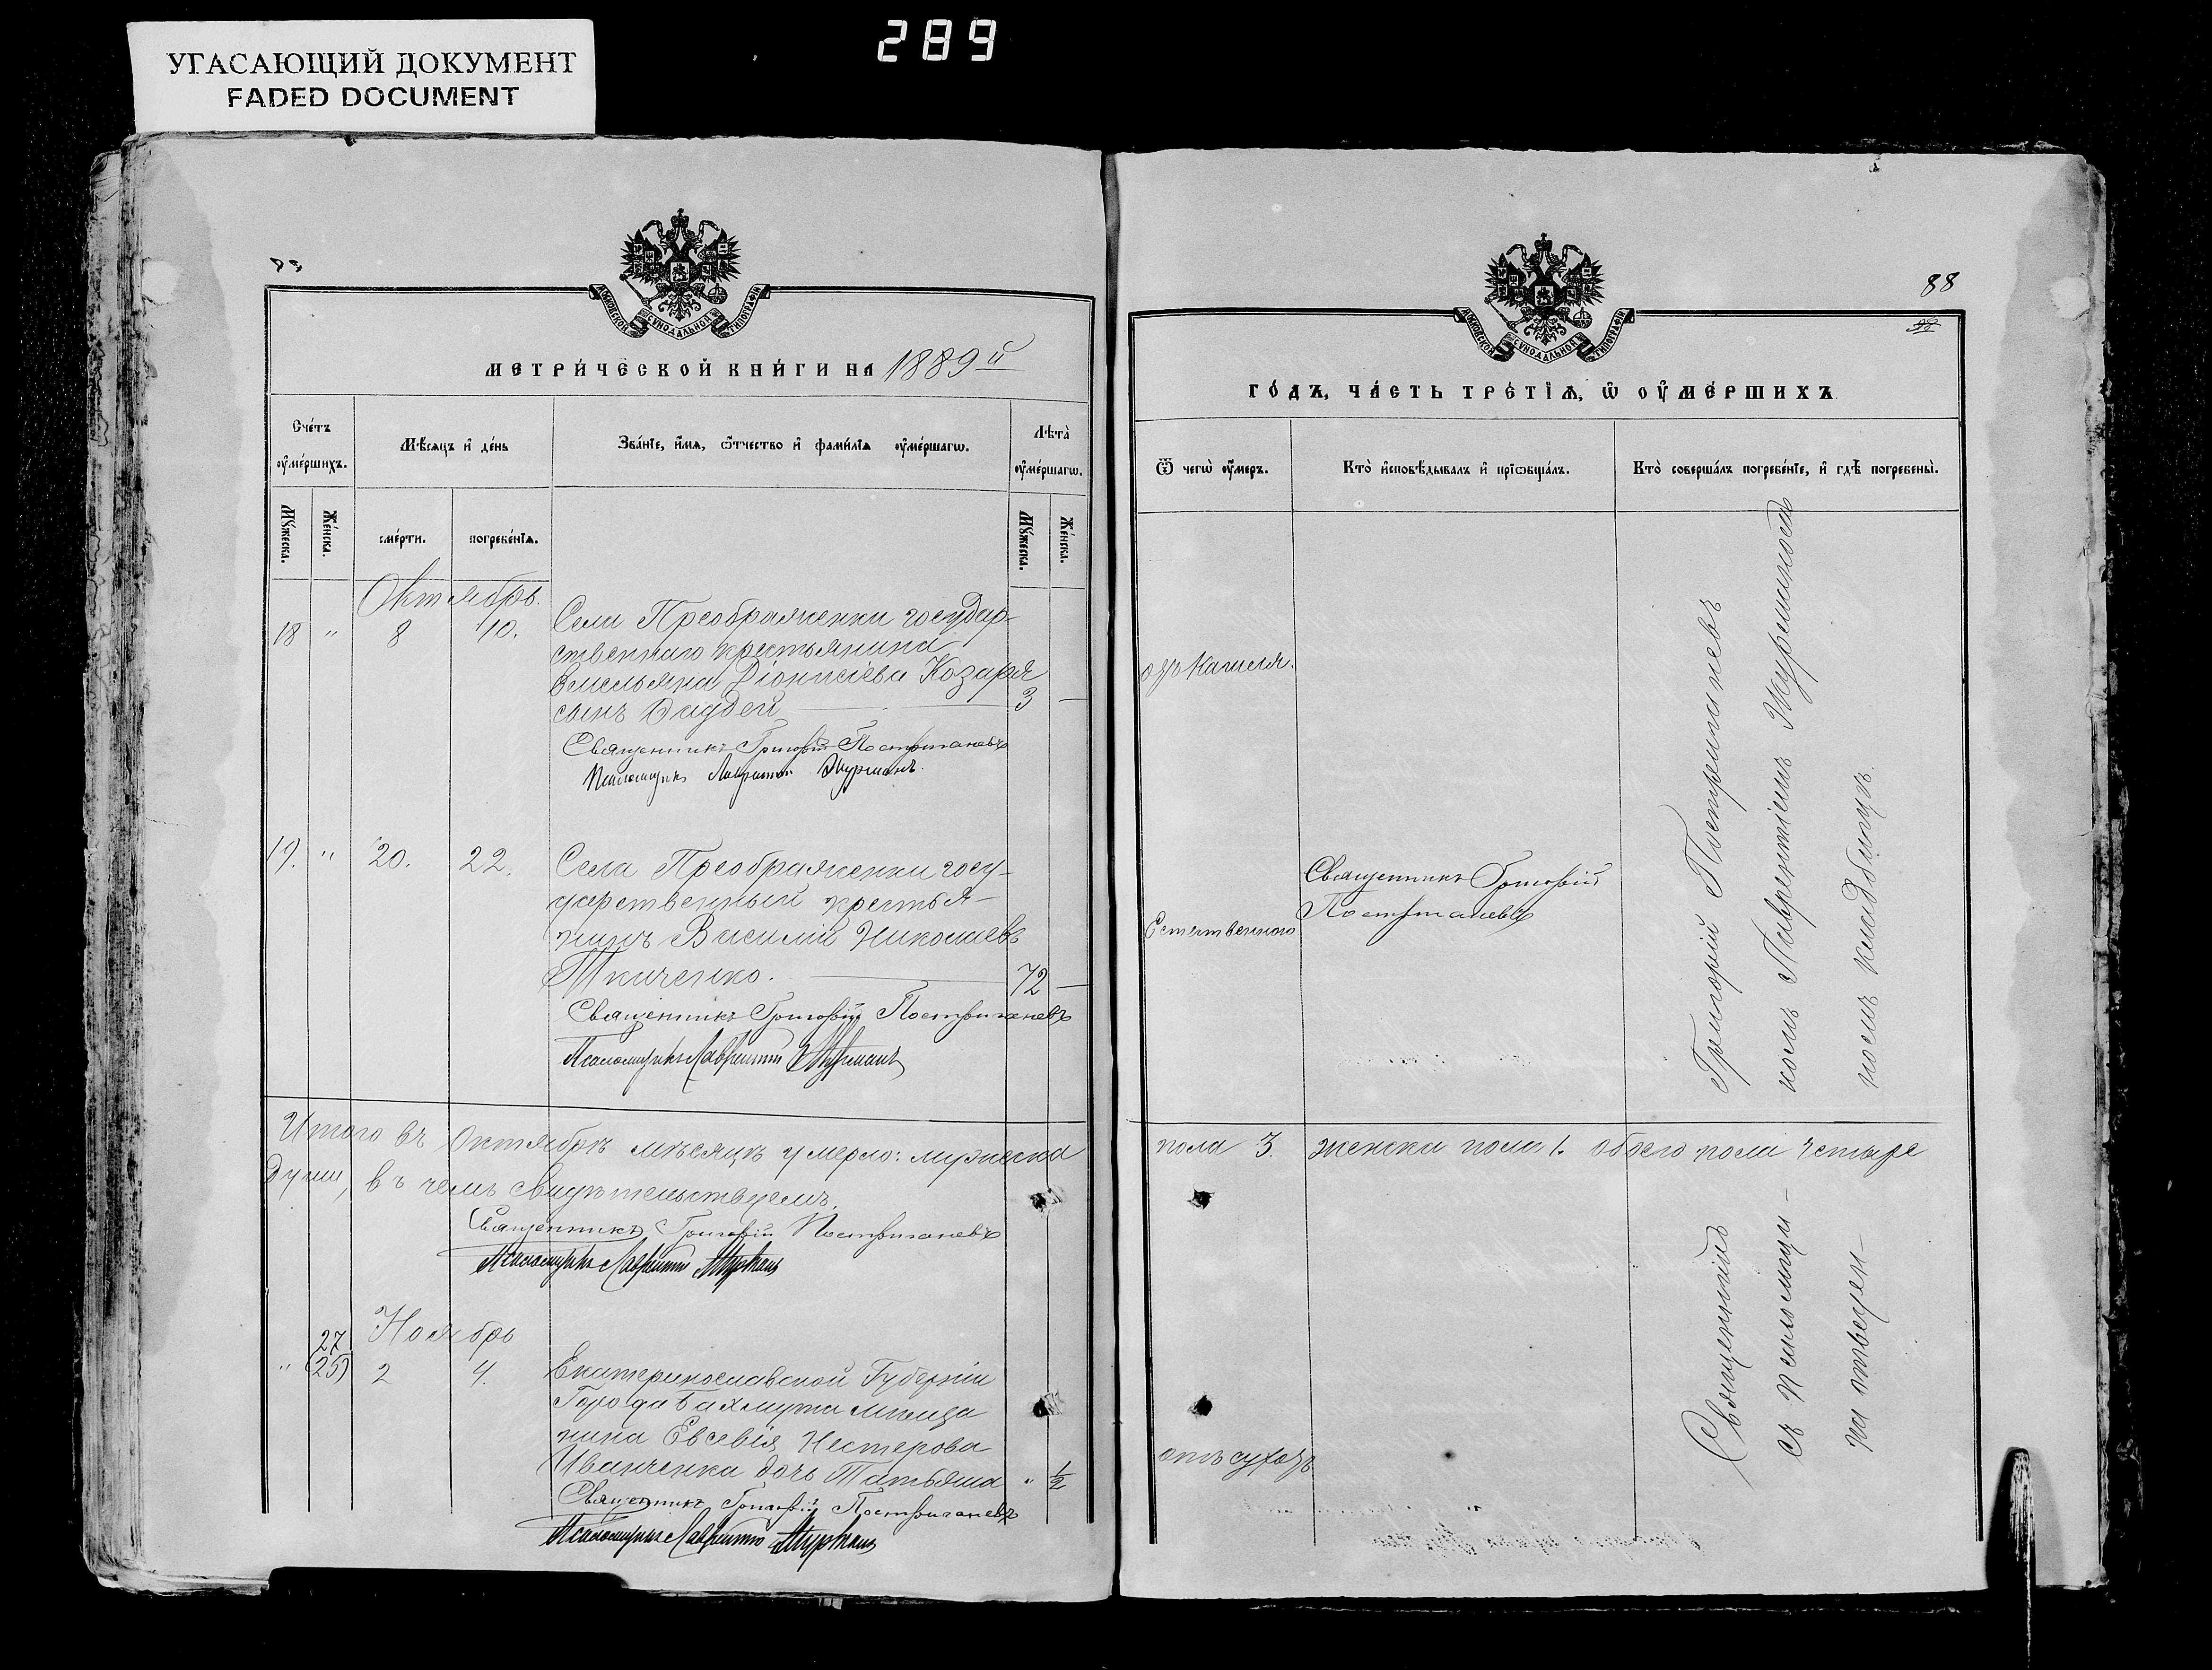 УГАСАЮЩИЙ ДОКУМЕНТ
FADED DOCUMENT
289
МОСКОВСКОЙ СѴНОДАЛЬНОЙ ТИПОГРАФІИ
МЕТРИ́ЧЕСКОЙ КНИ́ГИ НА 1889й
Сче́тъ ᲂу҆ме́ршихъ.
Мѣ́сяцъ и҆ де́нь
Зва́нїе, и҆́мѧ, ѻ҆́тчество и҆ фами́лїѧ ᲂу҆ме́ршагѡ.
Лѣ̑та ᲂу҆ме́ршагѡ.
Мꙋ́жеска.
Же́нска.
сме́рти.
погребе́нїѧ.
Мꙋ́жеска.
Же́нска.
Октябрь.
18 " 8 10.
Села Преображенки государ-
ственнаго крестьянина
Емельяна Діонисіева Козаря
сынъ 3 —
Священникъ Григорій Постриганевъ
Псаломщикъ Лаврентій Журманъ.
19. " 20. 22.
Села Преображенки госу-
дарственный крестья-
нинъ Василій Николаевъ
Ткаченко. 72 —
Священникъ Григорій Постриганевъ
Псаломщикъ Лаврентій Журманъ
Итого въ Октябрѣ мѣсяцѣ умерло: мужеска
души, въ чемъ свидѣтельствуемъ.
Священникъ Григорій Постриганевъ
Псаломщикъ Лаврентій Журманъ
Ноябрь
27
" (25) 2 4.
Екатеринославской Губерніи
Города Бахмута мѣща
нина Евсевія Нестерова
Иванченка дочь Татьяна " 1/2
Священникъ Григорій Постриганевъ
Псаломщикъ Лаврентій Журманъ
88
МОСКОВСКОЙ СѴНОДАЛЬНОЙ ТИПОГРАФІИ
ГО́ДЪ, ЧА́СТЬ ТРЕ́ТЇѦ, Ѡ҆ ОУ҆МЕ́РШИХЪ
Ѿ чегѡ̀ ᲂу҆́меръ.
Кто̀ и҆сповѣ́дывалъ и҆ прїѡбща́лъ.
Кто̀ соверша́лъ погребе́нїе, и҆ гдѣ̀ погребены̀.
отъ кашля.
Естественно
Священникъ Григорій
Постриганевъ
пола 3. женска пола 1. обоего пола четыре
отъ сухоты
Священникъ Григорій Постриганевъ
съ Псаломщи-комъ Лаврентіемъ Журманомъ
на отведен-номъ кладбищѣ.